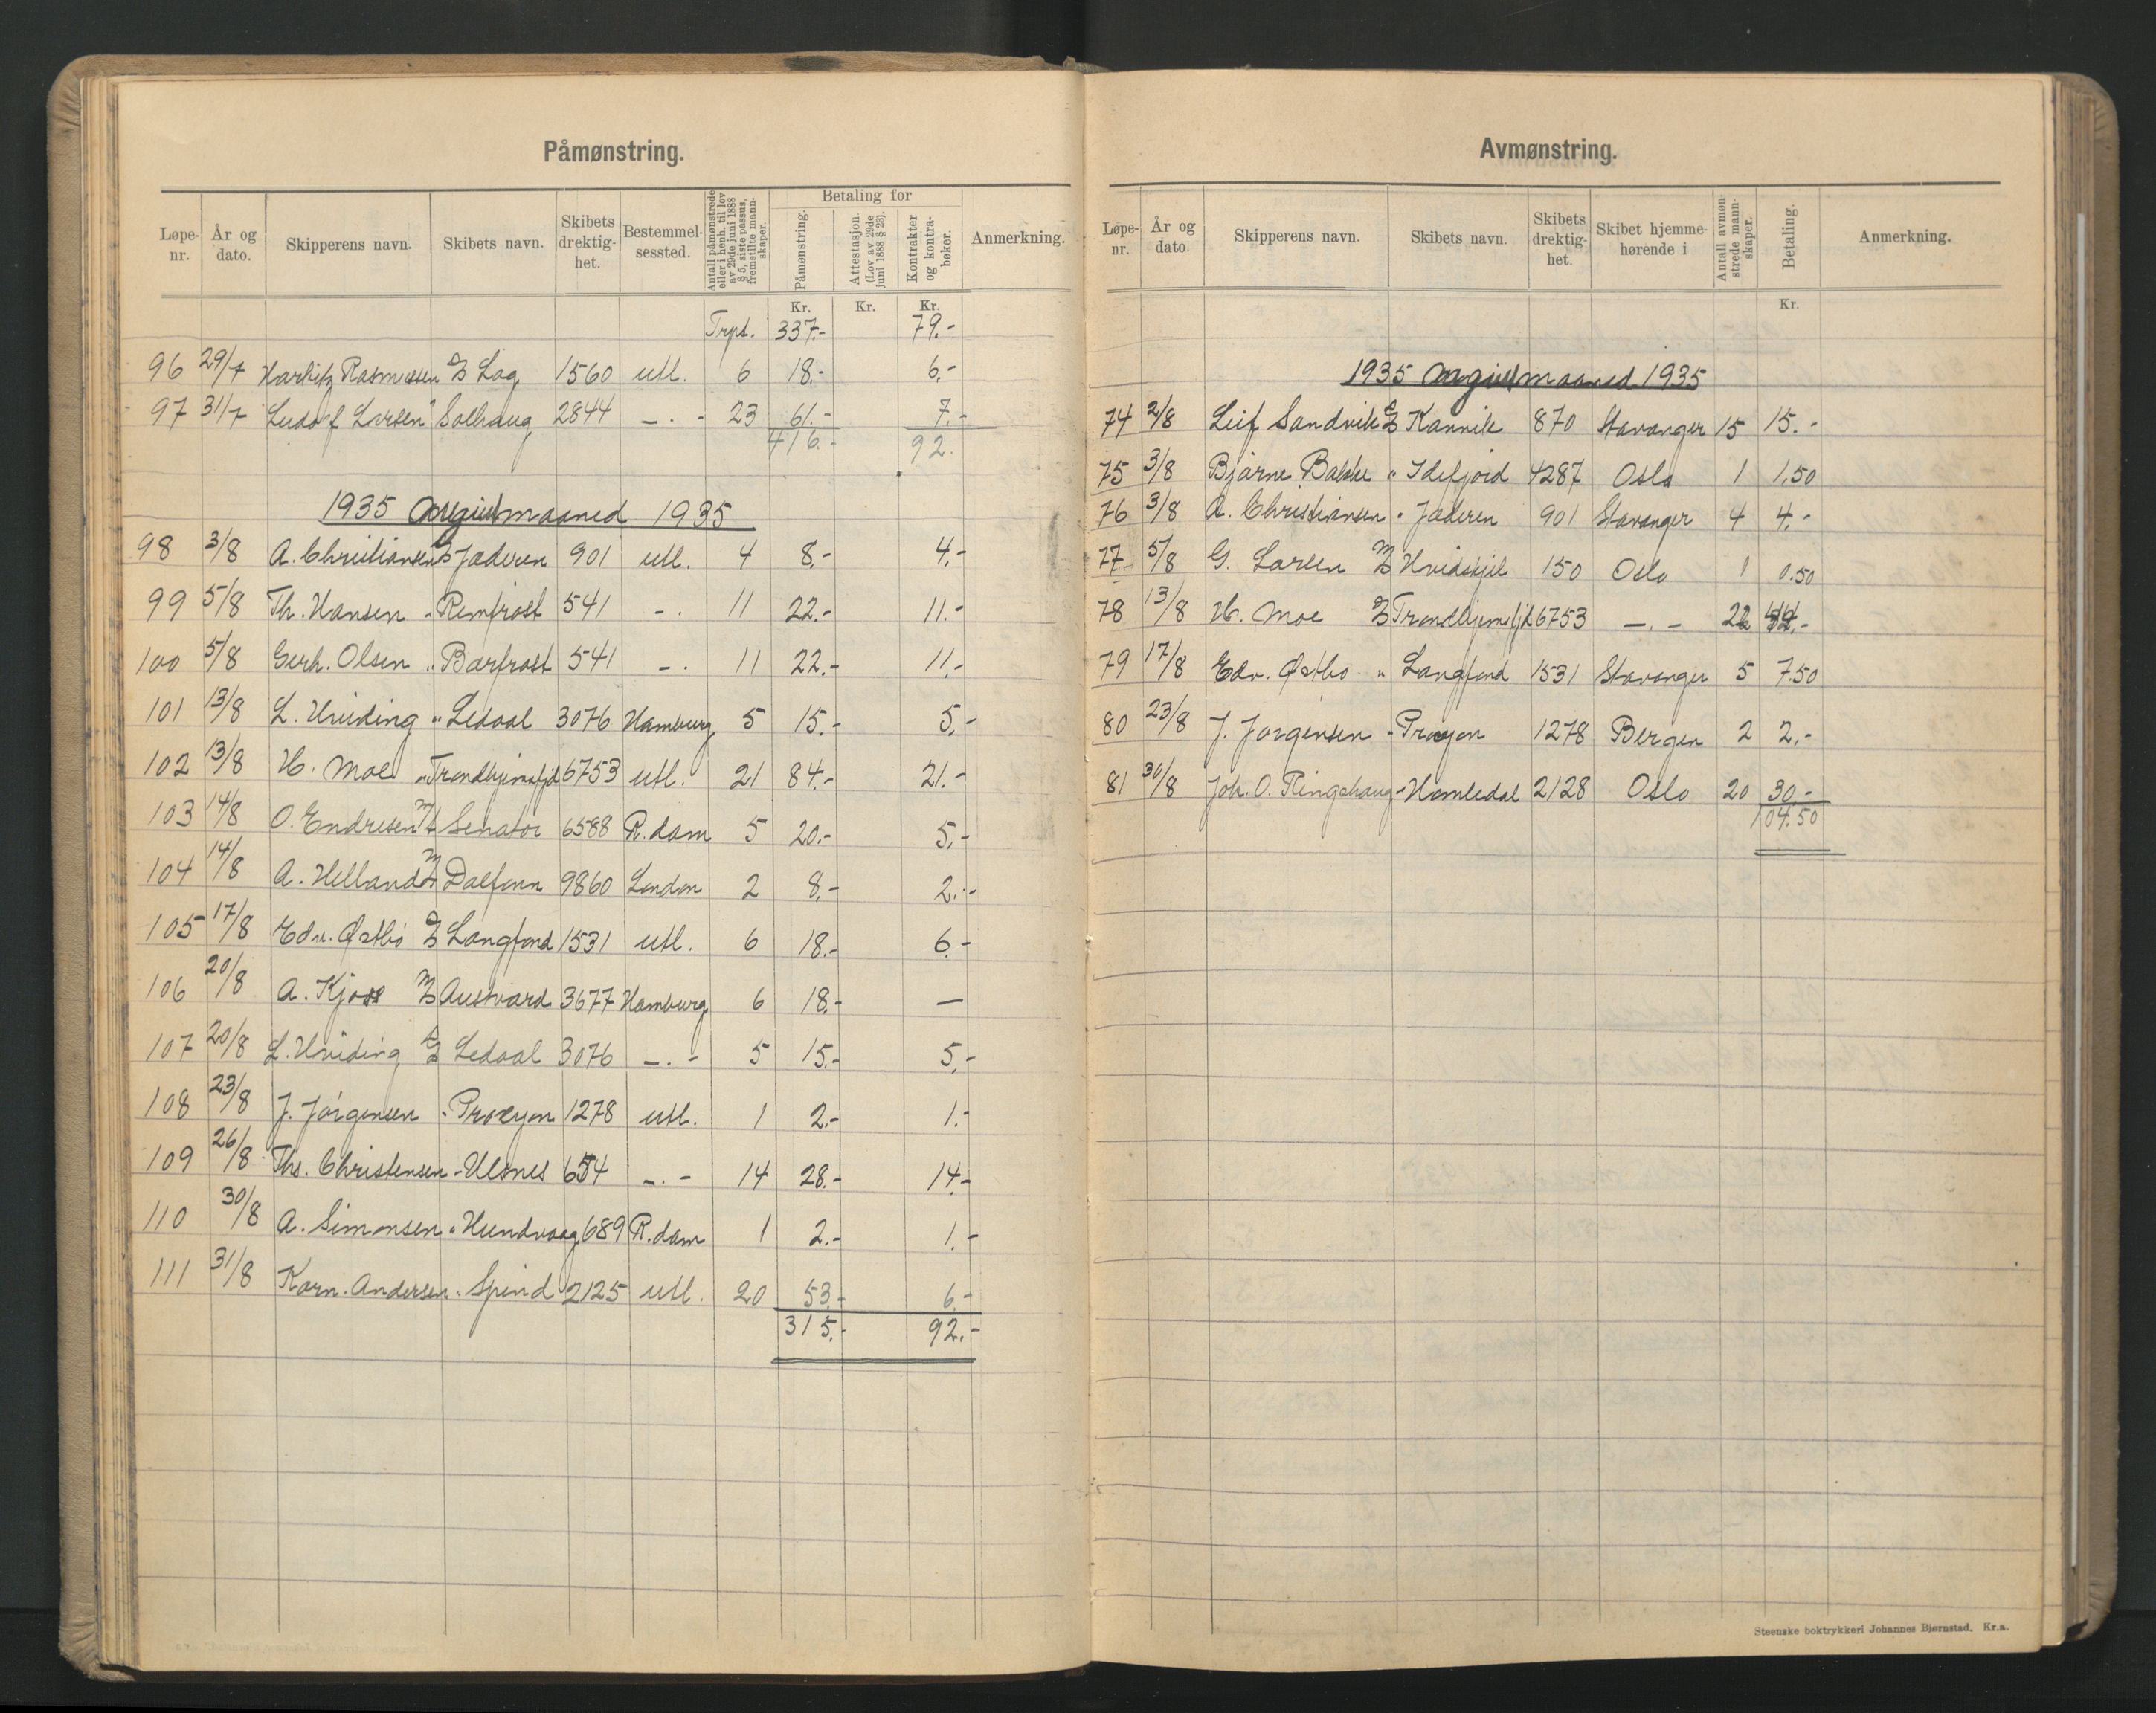 Påmønstring.
Løpe-nr. År og dato. Skipperens navn. Skibets navn. Skibets drektig-het. Bestemmel-sessted. Antall påmønstrede eller i henh. til lov av 29de juni 1888 § 5, siste passus, fremstilte mann-skaper. Betaling for Påmønstring. Attestasjon. (Lov av 29de juni 1888 § 23). Kontrakter og kontra-bøker. Anmerkning.
Kr. Kr. Kr.
Trpt. 337.- 79.-
96 29/7 Rasmussen Log 1560 utl. 6 18.- 6.-
97 31/7 Ludolf Larsen " Solhaug 2844 -.- 23 61.- 7.-
416.- 92.
1935 August maaned 1935
98 3/8 A. Christiansen Jæderen 901 utl. 4 8,- 4,-
99 5/8 Th. Hansen " Remfrost 541 -. 11 22.- 11.-
100 5/8 Gerh. Olsen " Barfrost 541 -. 11 22.- 11.-
101 13/8 L. Hviding " Ledaal 3076 Hamburg 5 15.- 5,-
102 13/8 H. Moe " Trondhjemsfjd 6753 utl. 21 84.- 21.-
103 14/8 O. Endresen M/T Senator 6588 R.dam 5 20.- 5,-
104 14/8 A. Helland M/T Dalfonn 9860 London 2 8,- 2.-
105 17/8 Edv. Østbø Langfond 1531 utl. 6 18.- 6.-
106 20/8 A. Kjoss Austvard 3677 Hamburg 6 18.- —
107 20/8 L. Hviding Ledaal 3076 -.- 5 15.- 5,-
108 23/8 J. Jörgensen " Procyon 1278 utl. 1 2.- 1.-
109 26/8 Ths. Christensen " Ulsnes 654 -.- 14 28.- 14.-
110 30/8 A. Simonsen " Hundvaag 689 R.dam 1 2.- 1.-
111 31/8 Korn. Andersen " Spind 2125 utl. 20 53.- 6.-
315.- 92.-
Avmønstring.
Løpe-nr. År og dato. Skipperens navn. Skibets navn. Skibets drektig-het. Skibet hjemme-hørende i Antall avmøn-strede mann-skaper. Betaling. Anmerkning.
Kr.
1935 August maaned 1935
74 2/8 Leif Sandvik Kannik 870 Stavanger 15 15.-
75 3/8 Bjarne Bakke " Idefjord 4287 Oslo 1 1,50
76 3/8 A. Christiansen " Jæderen 901 Stavanger 4 4.-
77 5/8 G. Larsen Hvidskjel 150 Oslo 1 0.50
78 13/8 H. Moe Trondhjemsfjd 6753 -.- 22 44.-
79 17/8 Edv. Østbø " Langfond 1531 Stavanger 5 7.50
80 23/8 J. Jorgensen " Procyon 1278 Bergen 2 2,-
81 30/8 Joh. O. Ringshaug " Homledal 2128 Oslo 20 30.-
104.50
Steenske boktrykkeri Johannes Bjørnstad. Kr.a.